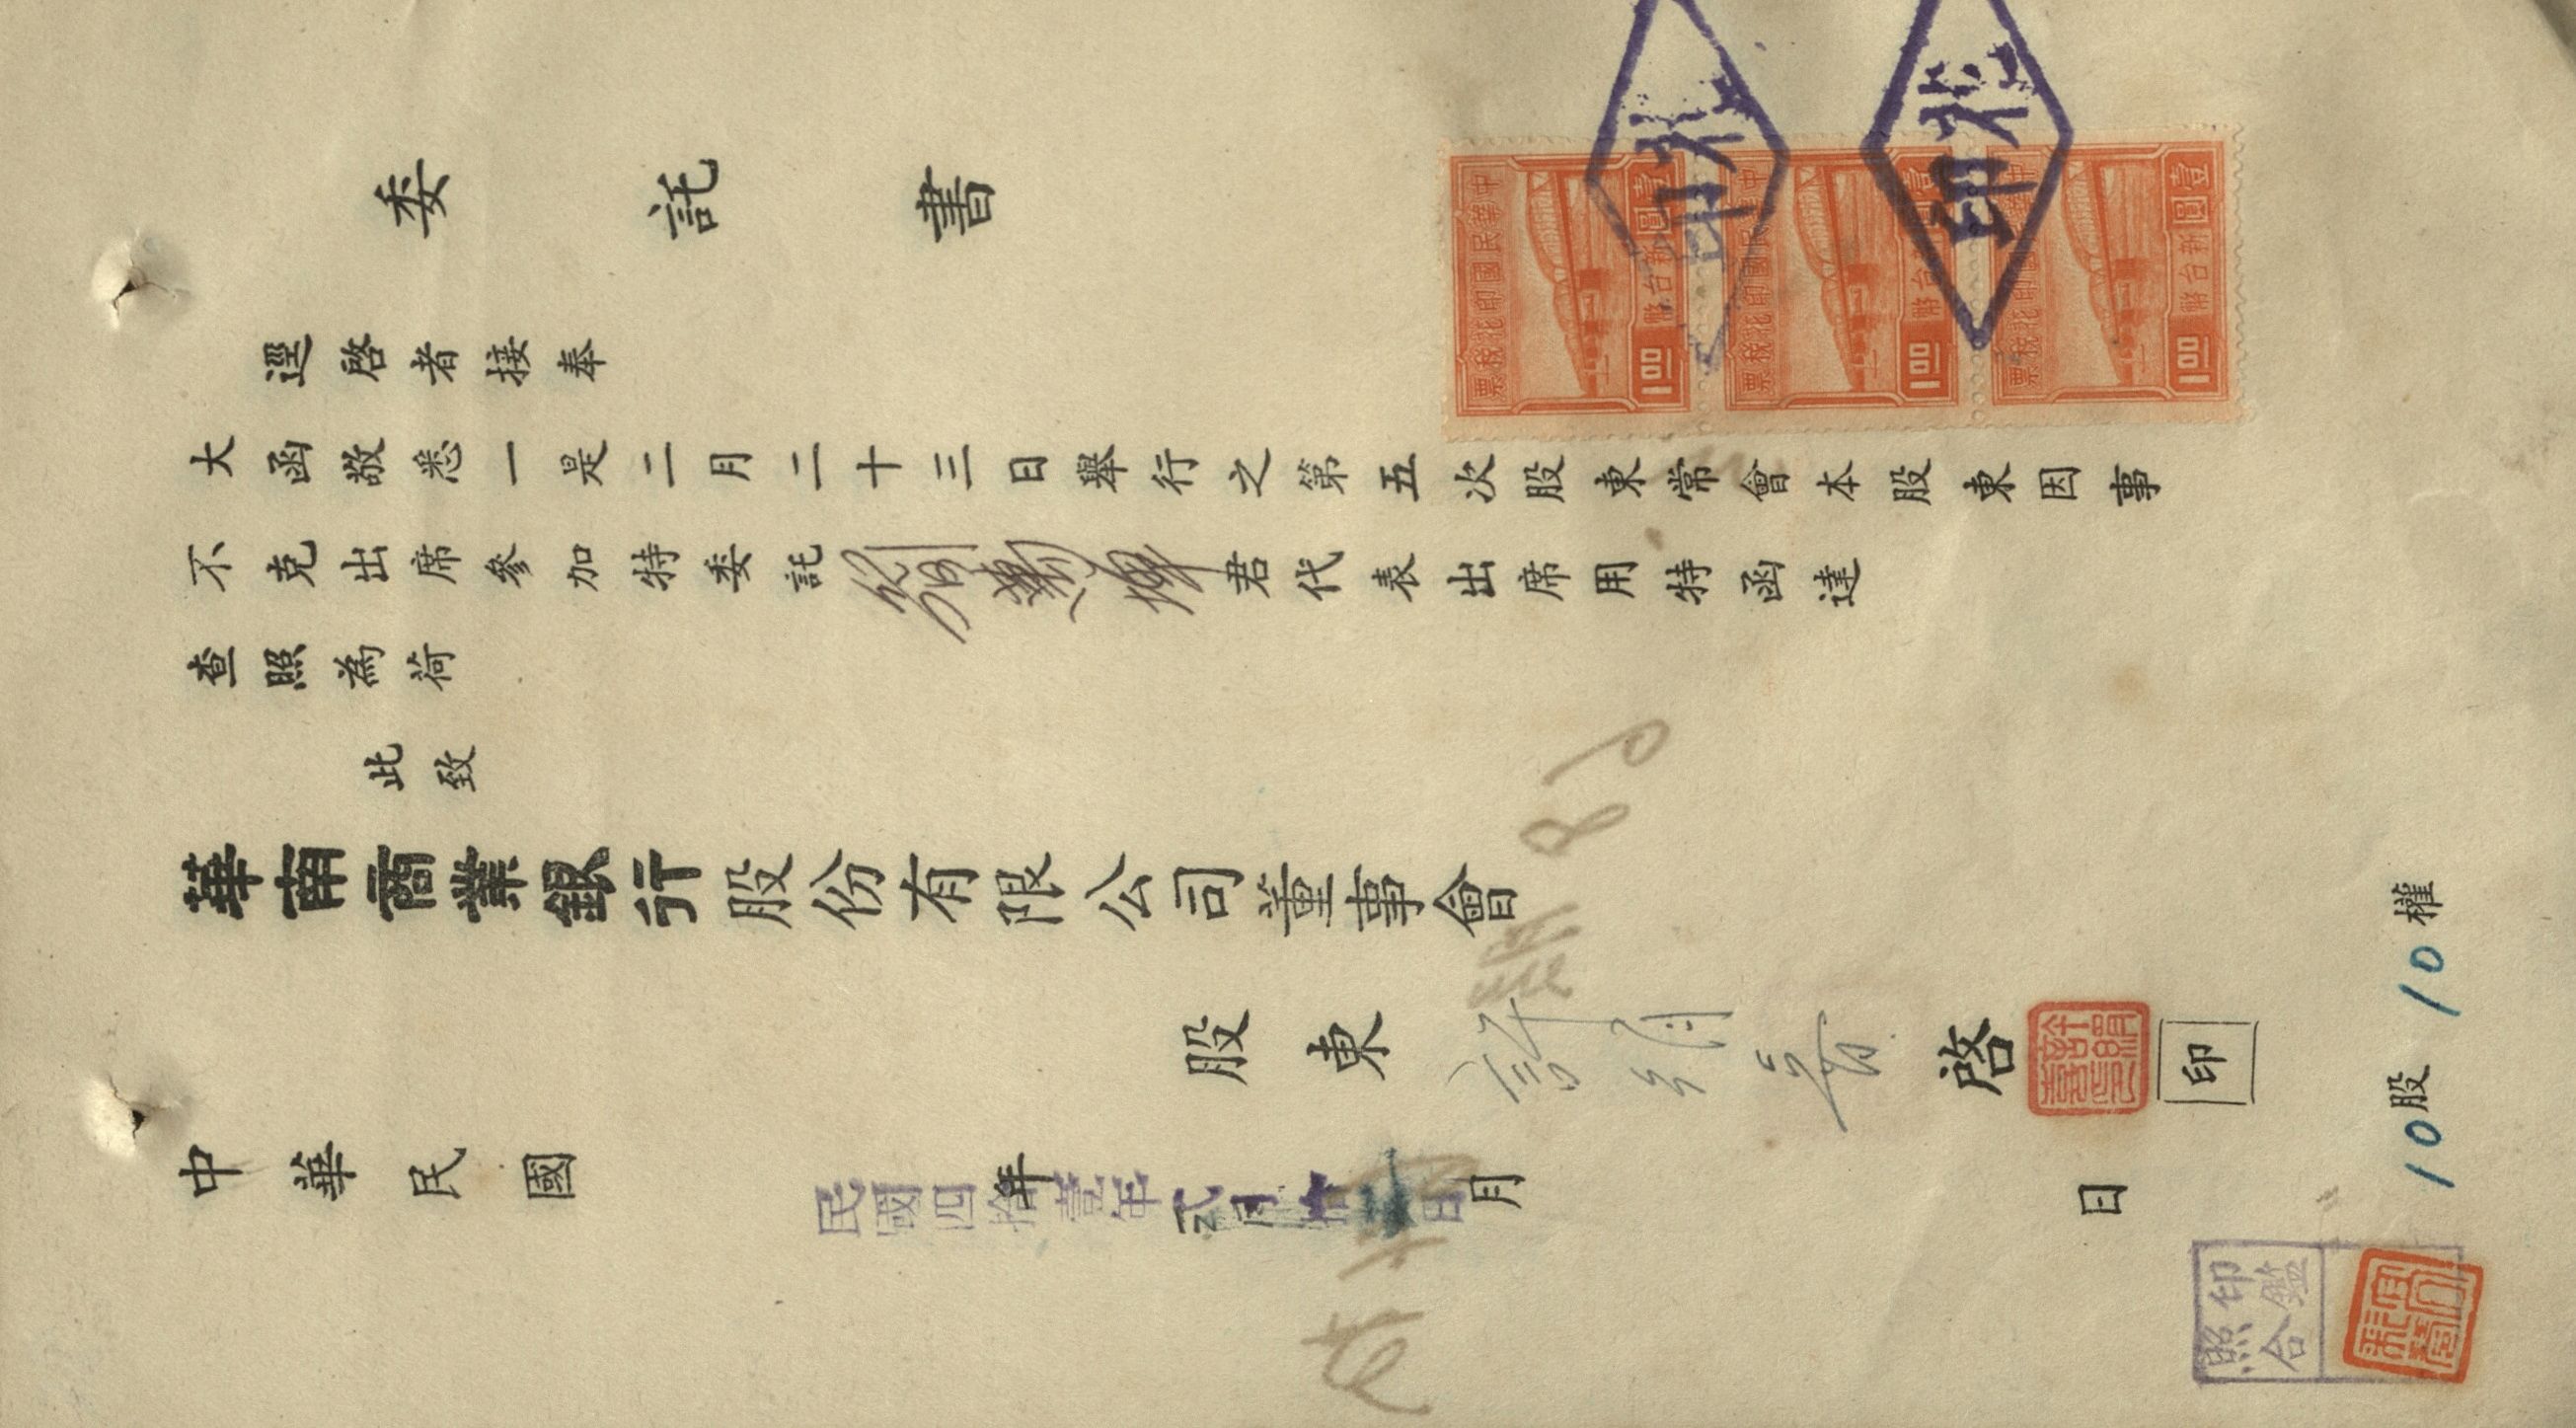 委託書
中華民國印花稅票
新台幣壹圓
1.00
中華民國印花稅票
新台幣壹圓
1.00
中華民國印花稅票
新台幣壹圓
1.00
逕啓者接奉
大函敬悉一是二月二十三日舉行之第五次股東常會本股東因事
不克出席參加特委託君代表出席用特函達
查照為荷
此致
華南商業銀行股份有限公司董事會
股東許啓印
中華民國年月日
民國四拾壹年貳月拾日
10股10權
印鑑
照合